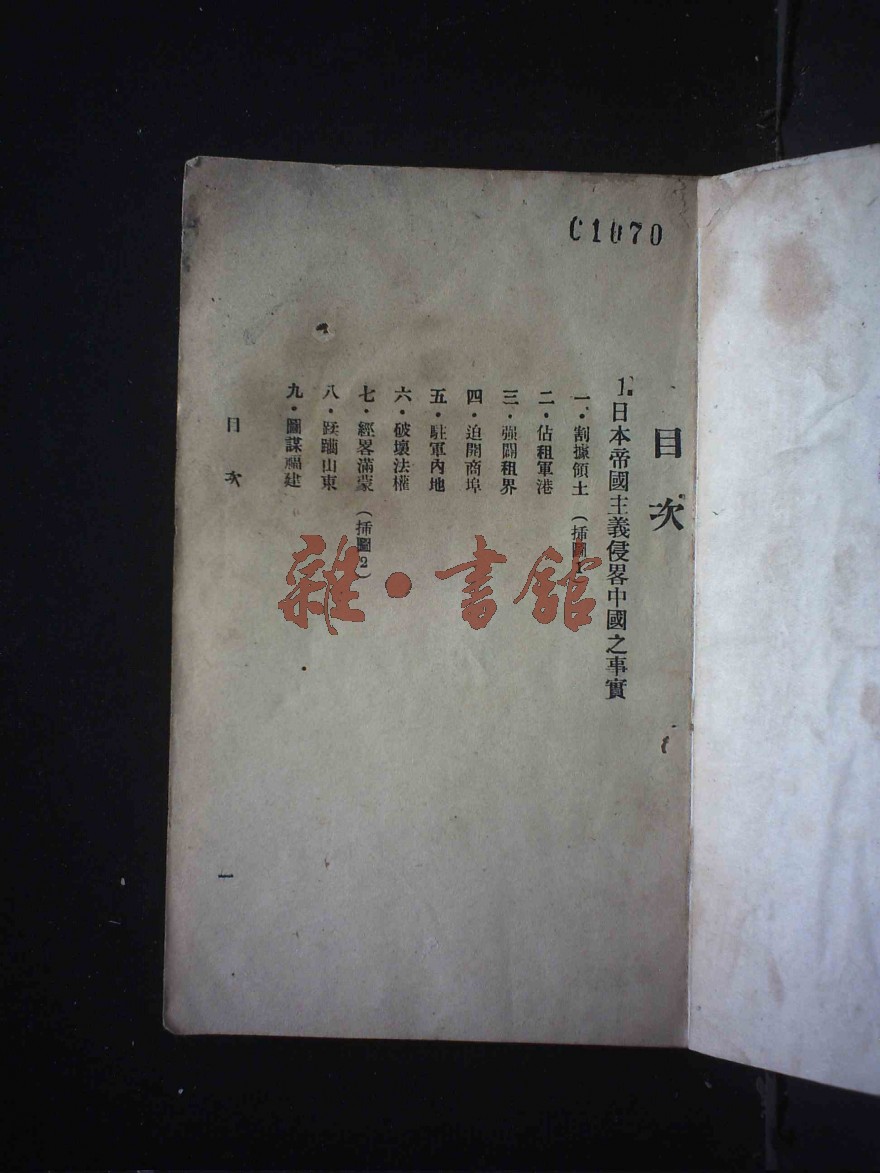 C1070
目次
1.日本帝國主義侵畧中國之事實
一.割據領土（插圖1）
二.佔租軍港
三.强闢租界
四.迫開商埠
五.駐軍內地
六.破壞法權
七.經畧滿蒙（插圖2）
八.蹂躪山東
九.圖謀福建
目次
一
雜·書館